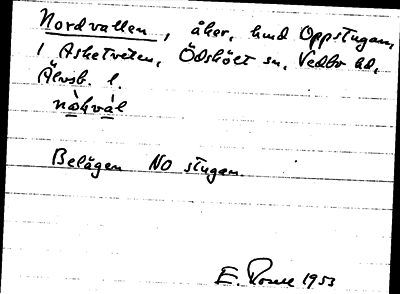 Nordvallen, åker, hmd Oppstugan,
1 Asketveten, Ödskölt sn, Vedbo hd,
Älvsb. l.
nòḷvàl
Belägen NO stugan.
E. 1953